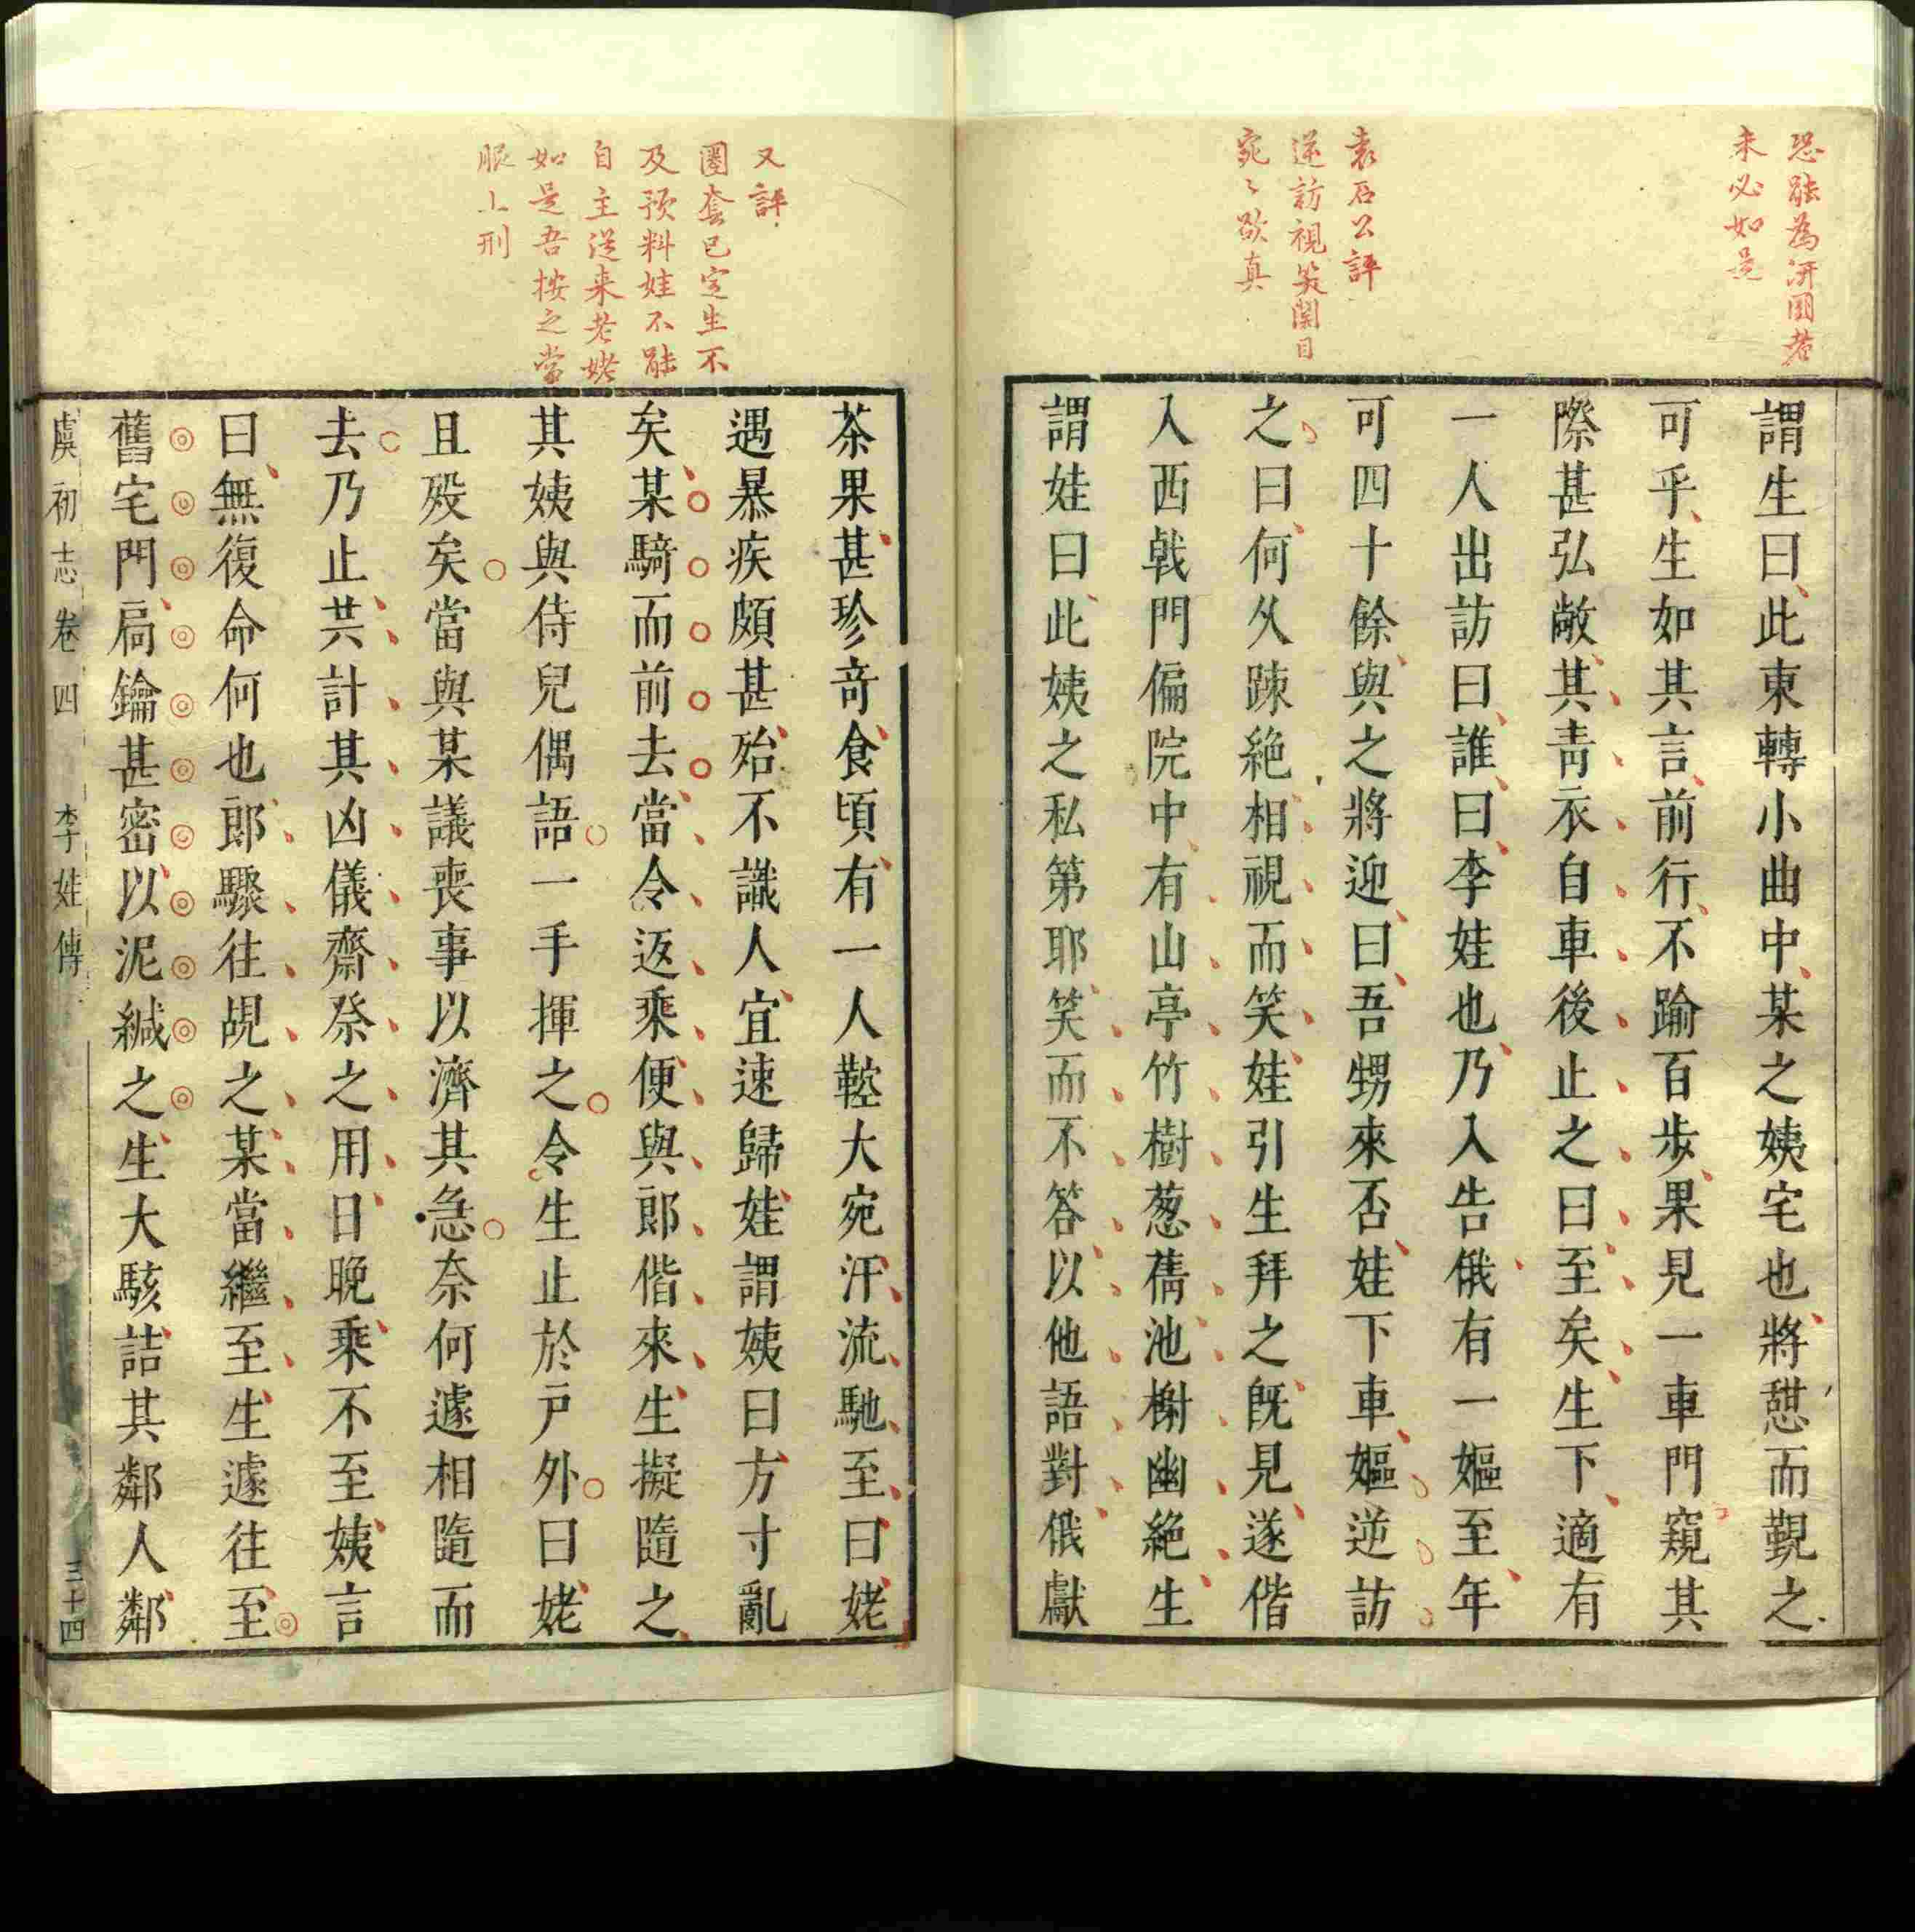 恐䏻為汧國者
未必如是
袁石公評
逆訪視笑関目
宛〻欲真
謂生曰此東轉小曲中某之姨宅也將憇而覲之
可乎生如其言前行不踰百歩果見一車門窺其
際甚弘敞其靑衣自車後止之曰至矣生下適有
一人出訪曰誰曰李娃也乃入告俄有一嫗至年
可四十餘與之將迎曰吾甥來否娃下車嫗逆訪
之曰何久踈絶相視而笑娃引生拜之旣見遂偕
入西戟門偏院中有山亭竹樹葱蒨池榭幽絶生
謂娃曰此姨之私第耶笑而不答以他語對俄獻
又評
圈套已定生不
及預料娃不䏻
自主從来老姥
如是吾按之當
服上刑
茶果甚珍竒食頃有一人鞚大宛汗流馳至曰姥
遇暴疾頗甚殆不識人宜速歸娃謂姨曰方寸亂
矣某騎而前去當令返乘便與郎偕來生擬隨之
其姨與侍兒偶語一手揮之令生止於戸外曰姥
且歿矣當與某議喪事以濟其急奈何遽相隨而
去乃止共計其凶儀齋祭之用日晚乘不至姨言
曰無復命何也郎驟往覘之某當繼至生遽往至
舊宅門扃鑰甚密以泥緘之生大駭詰其鄰人鄰
虞初志卷四 李娃傳 三十四